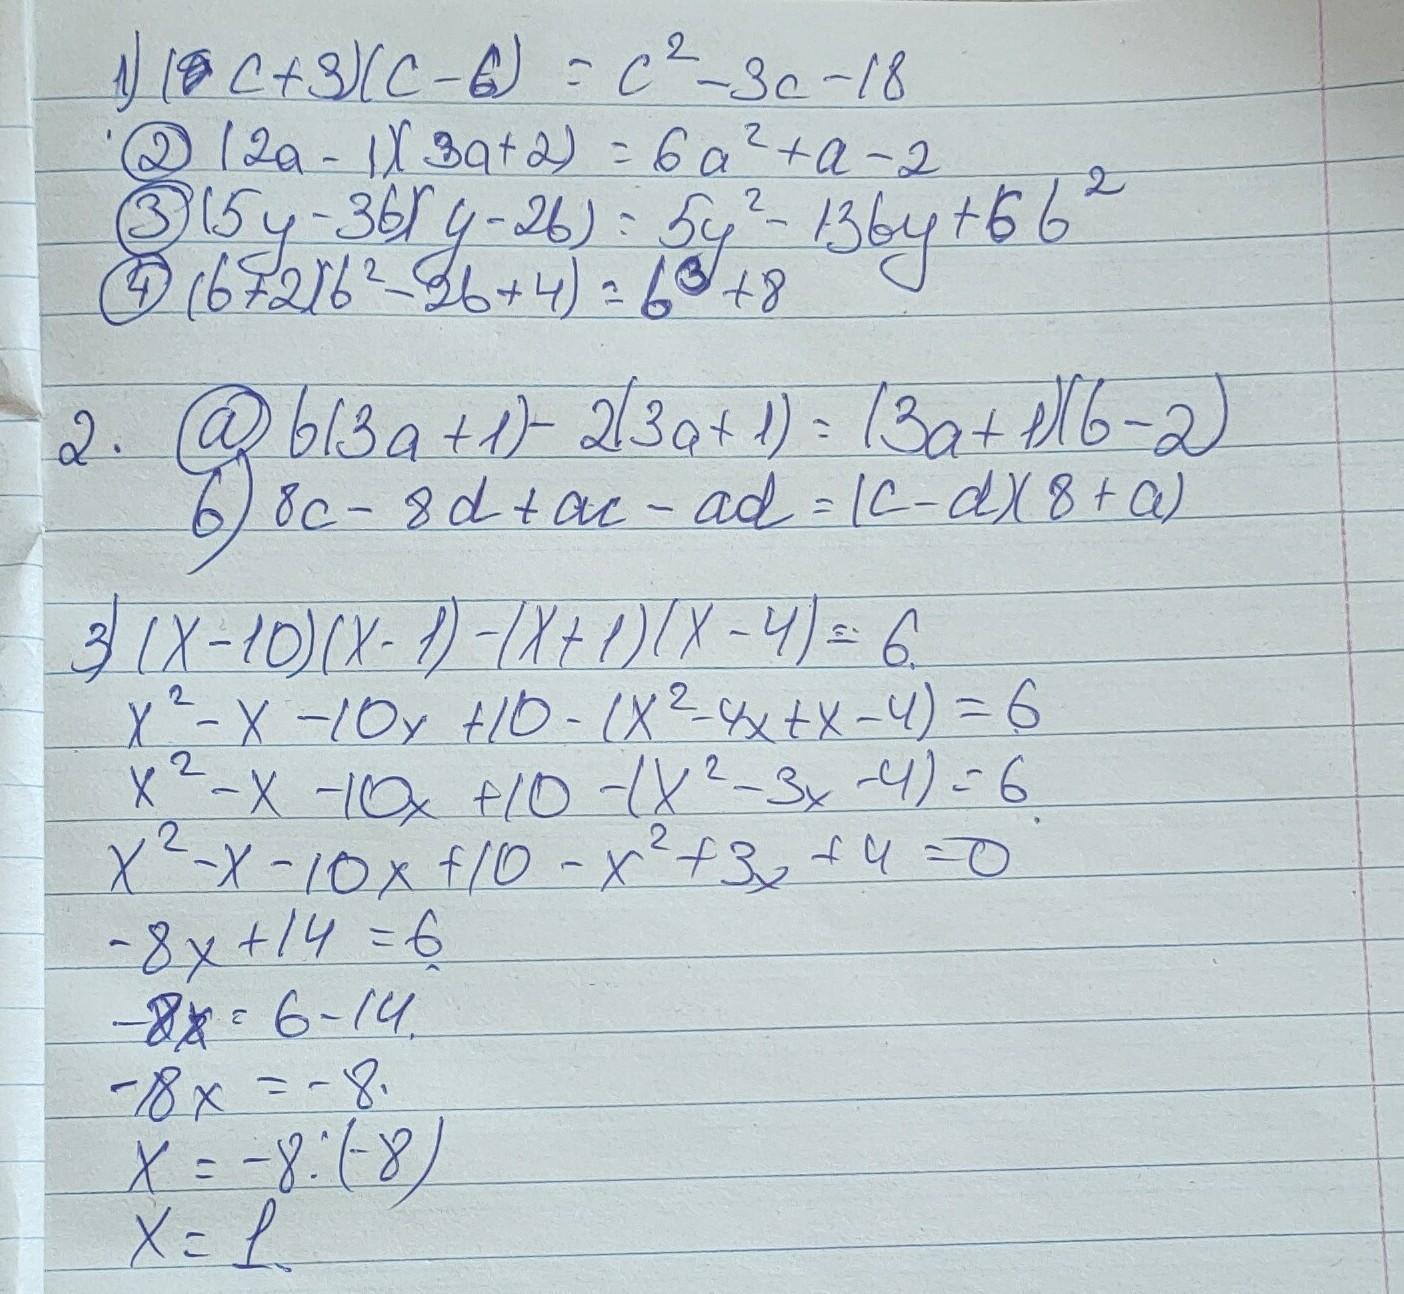 1) (c+3)(c-6) = c² - 3c - 18
② (2a - 1)(3a+2) = 6a² + a - 2
③ (5y - 3b)(y - 2b) = 5y² - 13by + 6b²
④ (b+2)(b² - 2b + 4) = b³ + 8
2. ⓐ b(3a+1) - 2(3a+1) = (3a+1)(b-2)
б) 8c - 8d + ac - ad = (c-d)(8+a)
3) (x-10)(x-1) - (x+1)(x-4) = 6
x² - x - 10x + 10 - (x² - 4x + x - 4) = 6
x² - x - 10x + 10 - (x² - 3x - 4) = 6
x² - x - 10x + 10 - x² + 3x + 4 = 0
-8x + 14 = 6
-8x = 6 - 14
-8x = -8
x = -8 : (-8)
x = 1